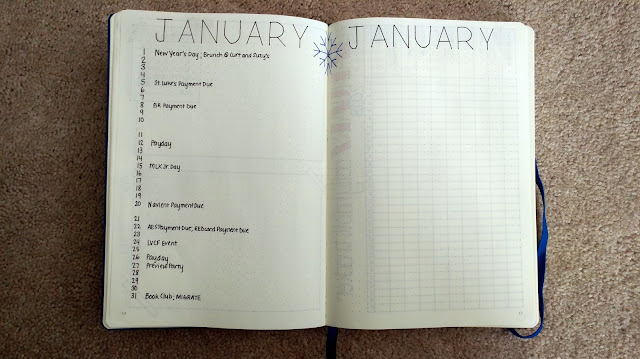 JANUARY
1 New Year's Day; Brunch @ Curt and Suzy's
2
3
4
5 St. Luke's Payment Due
6
7
8 Payment Due
9
10
11
12 Payday
13
14
15 MLK Jr. Day
16
17
18
19
20 Navient Payment Due
21
22 AES Payment Due; REDcard Payment Due
23
24 LVCF Event
25
26 Payday
27 Preview Party
28
29
30
31 Book Club; MIGRATE
JANUARY